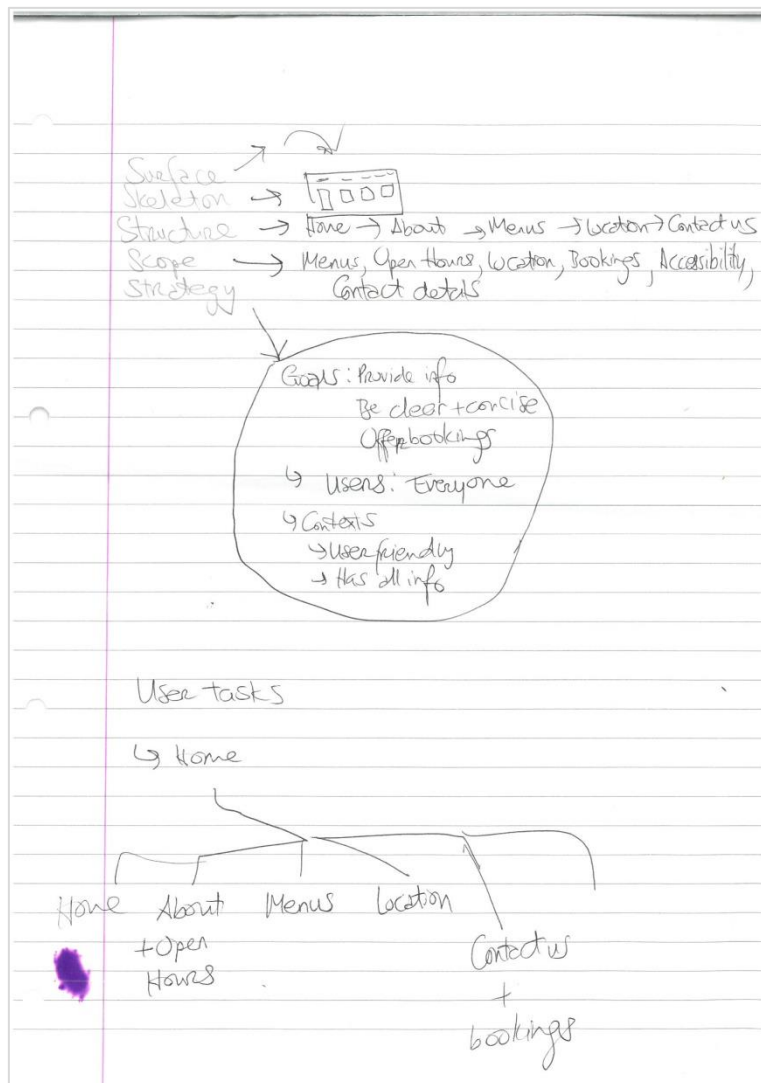 Surface →
Skeleton →
Structure → Home → About → Menus → Location → Contact us
Scope → Menus, Open Hours, Location, Bookings, Accessibility,
Strategy Contact details
Goals: Provide info
Be clear + concise
Offer bookings
↳ Users: Everyone
↳ Contexts
→ User friendly
→ Has all info
User tasks
↳ Home
Home About Menus Location
+ Open
Hours
Contact us
+
bookings